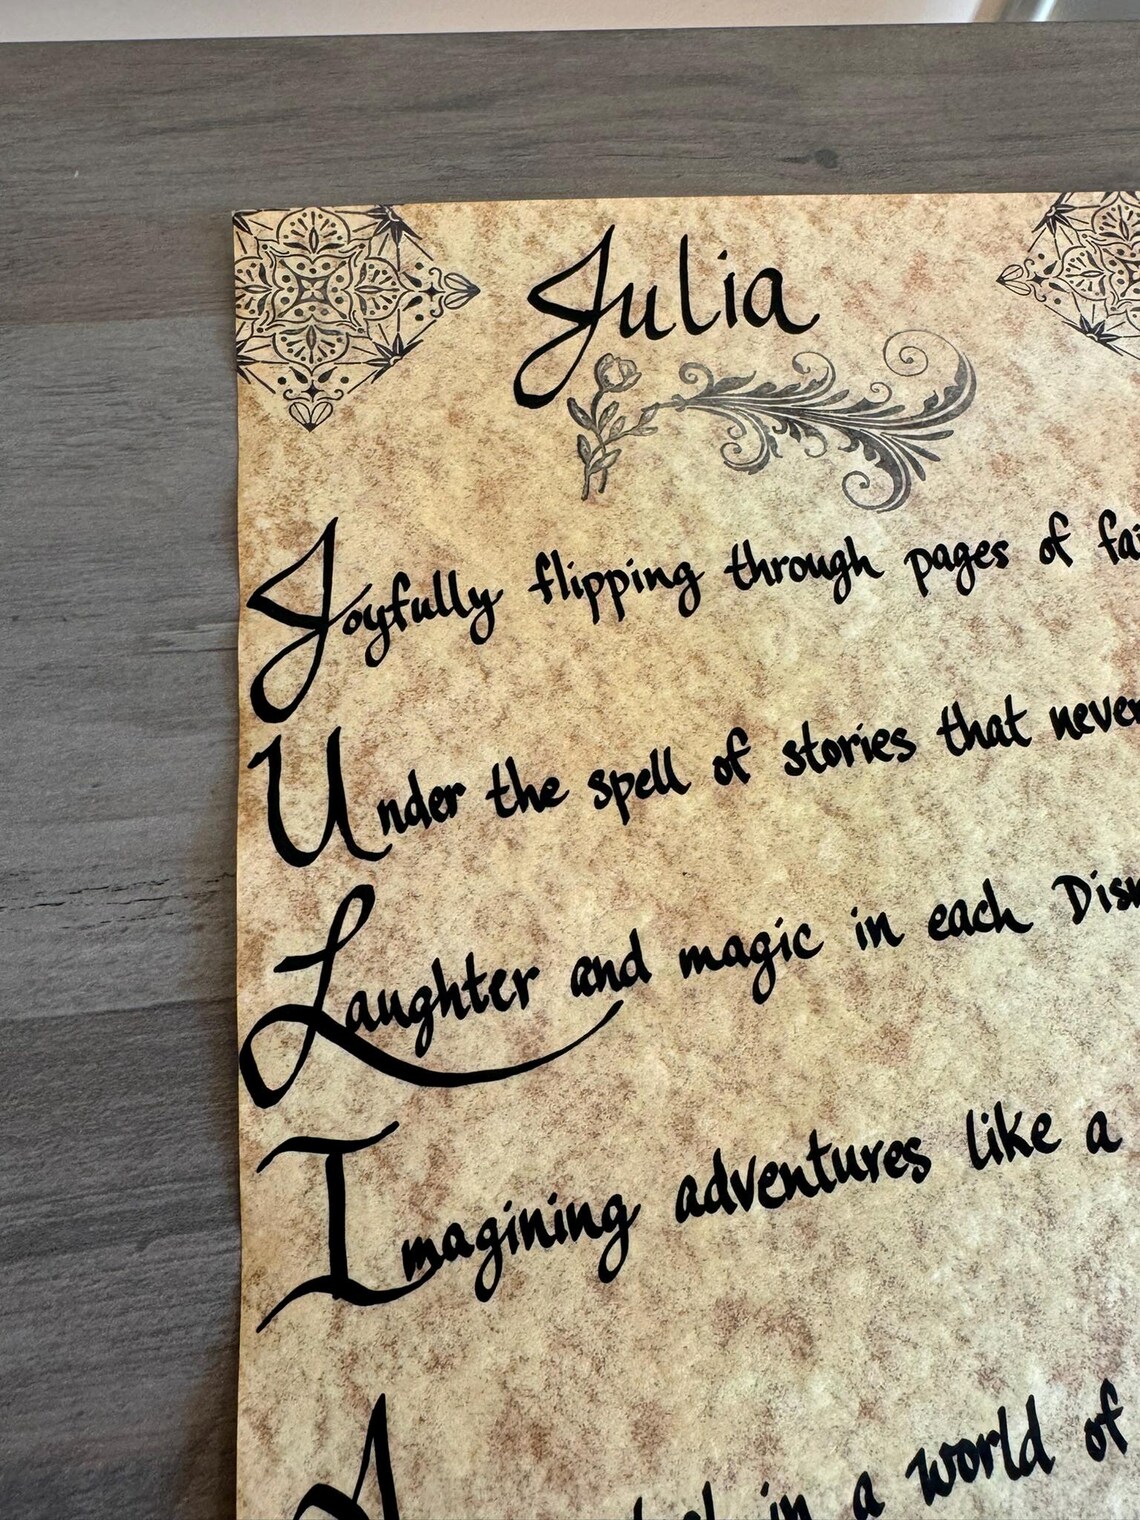 Julia
Joyfully flipping through pages of
Under the spell of stories that never
Laughter and magic in each
Imagining adventures like a
in a world of